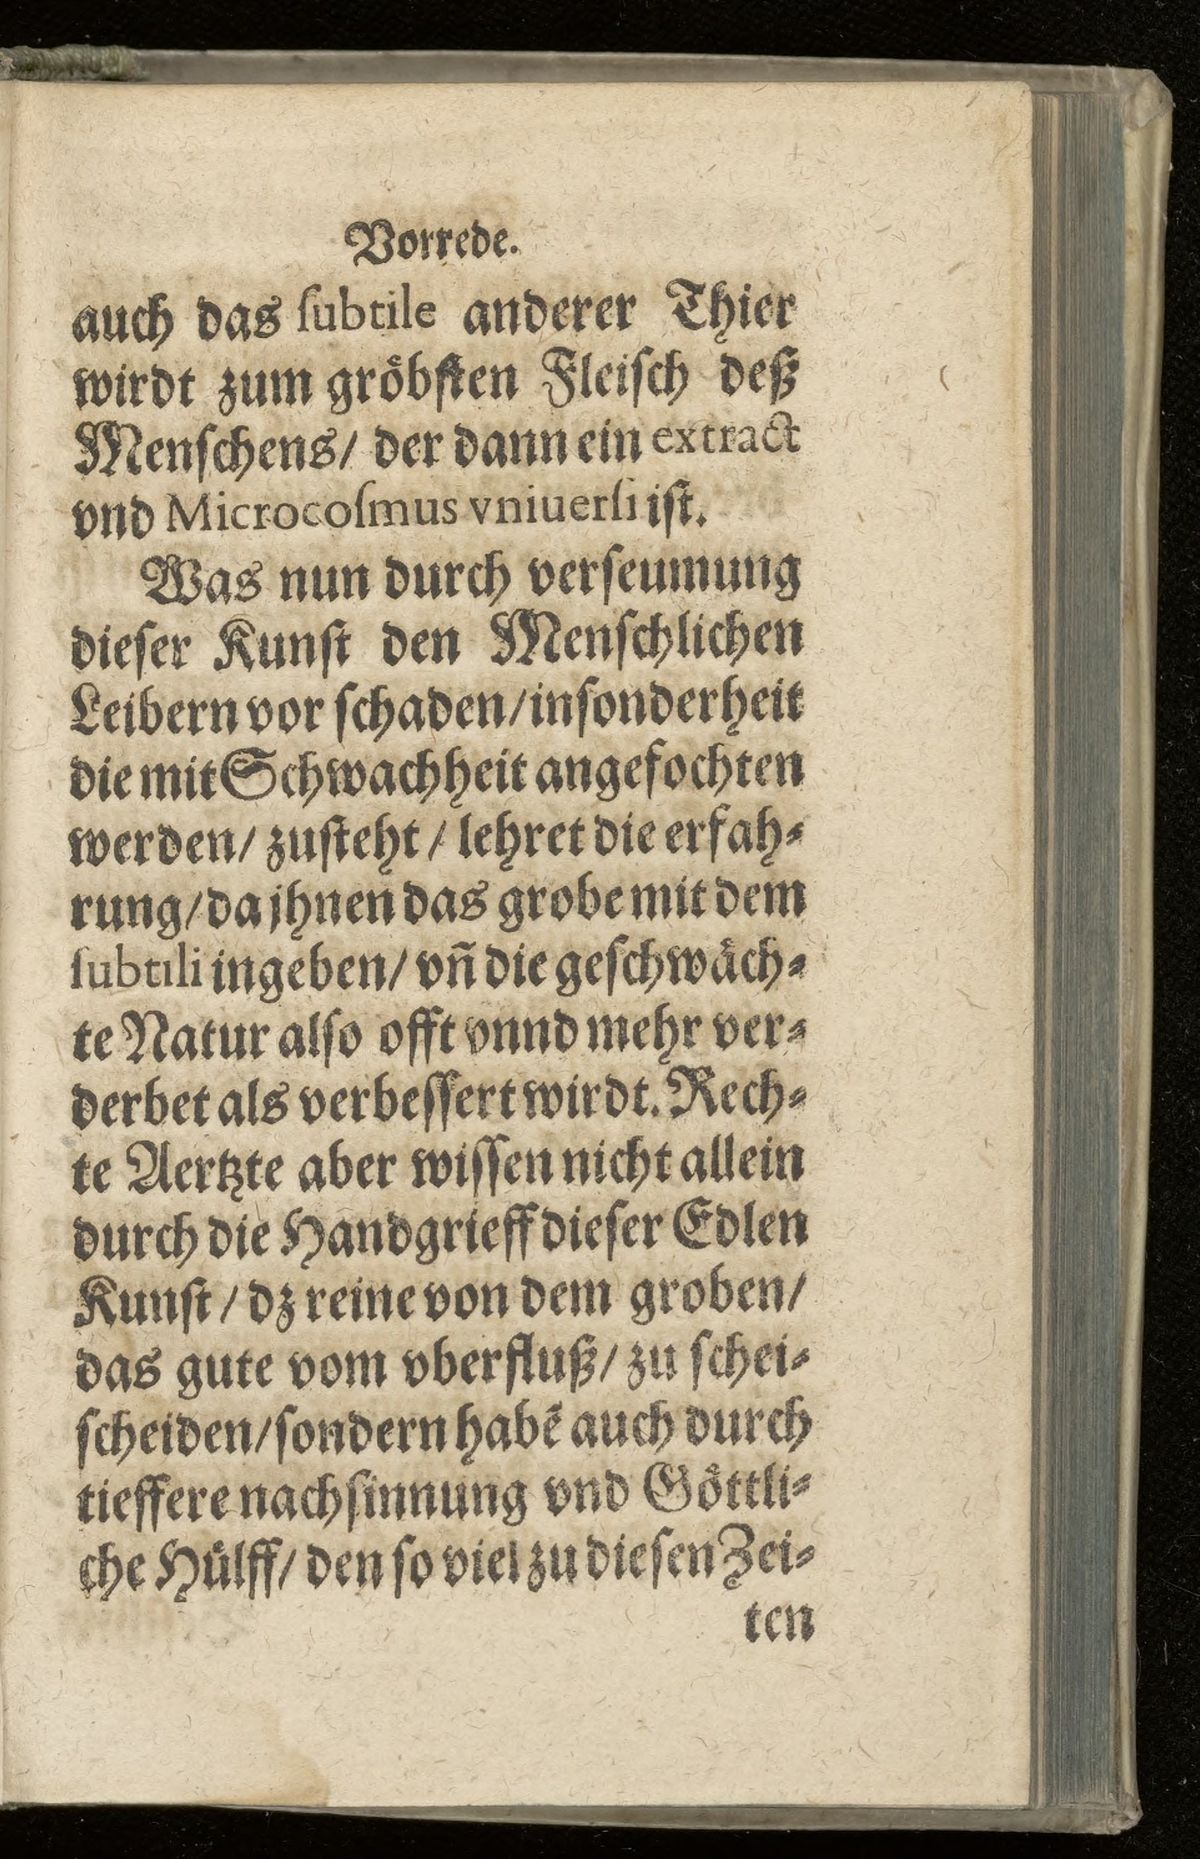 Vorrede.
auch das ſubtile anderer Thier
wirdt zum gröbſten Fleiſch deß
Menſchens/ der dann ein extract
vnd Microcoſmus vniuerſi iſt.
Was nun durch verſeumung
dieſer Kunſt den Menſchlichen
Leibern vor ſchaden/inſonderheit
die mit Schwachheit angefochten
werden/ zuſteht/ lehret die erfah⸗
rung/da jhnen das grobe mit dem
ſubtili ingeben/ vñ die geſchwäch⸗
te Natur alſo offt vnnd mehr ver⸗
derbet als verbeſſert wirdt. Rech⸗
te Aertzte aber wiſſen nicht allein
durch die Handgrieff dieſer Edlen
Kunſt/ dz reine von dem groben/
das gute vom vberfluß/ zu ſchei⸗
ſcheiden/ſondern habẽ auch durch
tieffere nachſinnung vnd Göttli⸗
che Hülff/ den ſo viel zu dieſen Zei⸗
ten